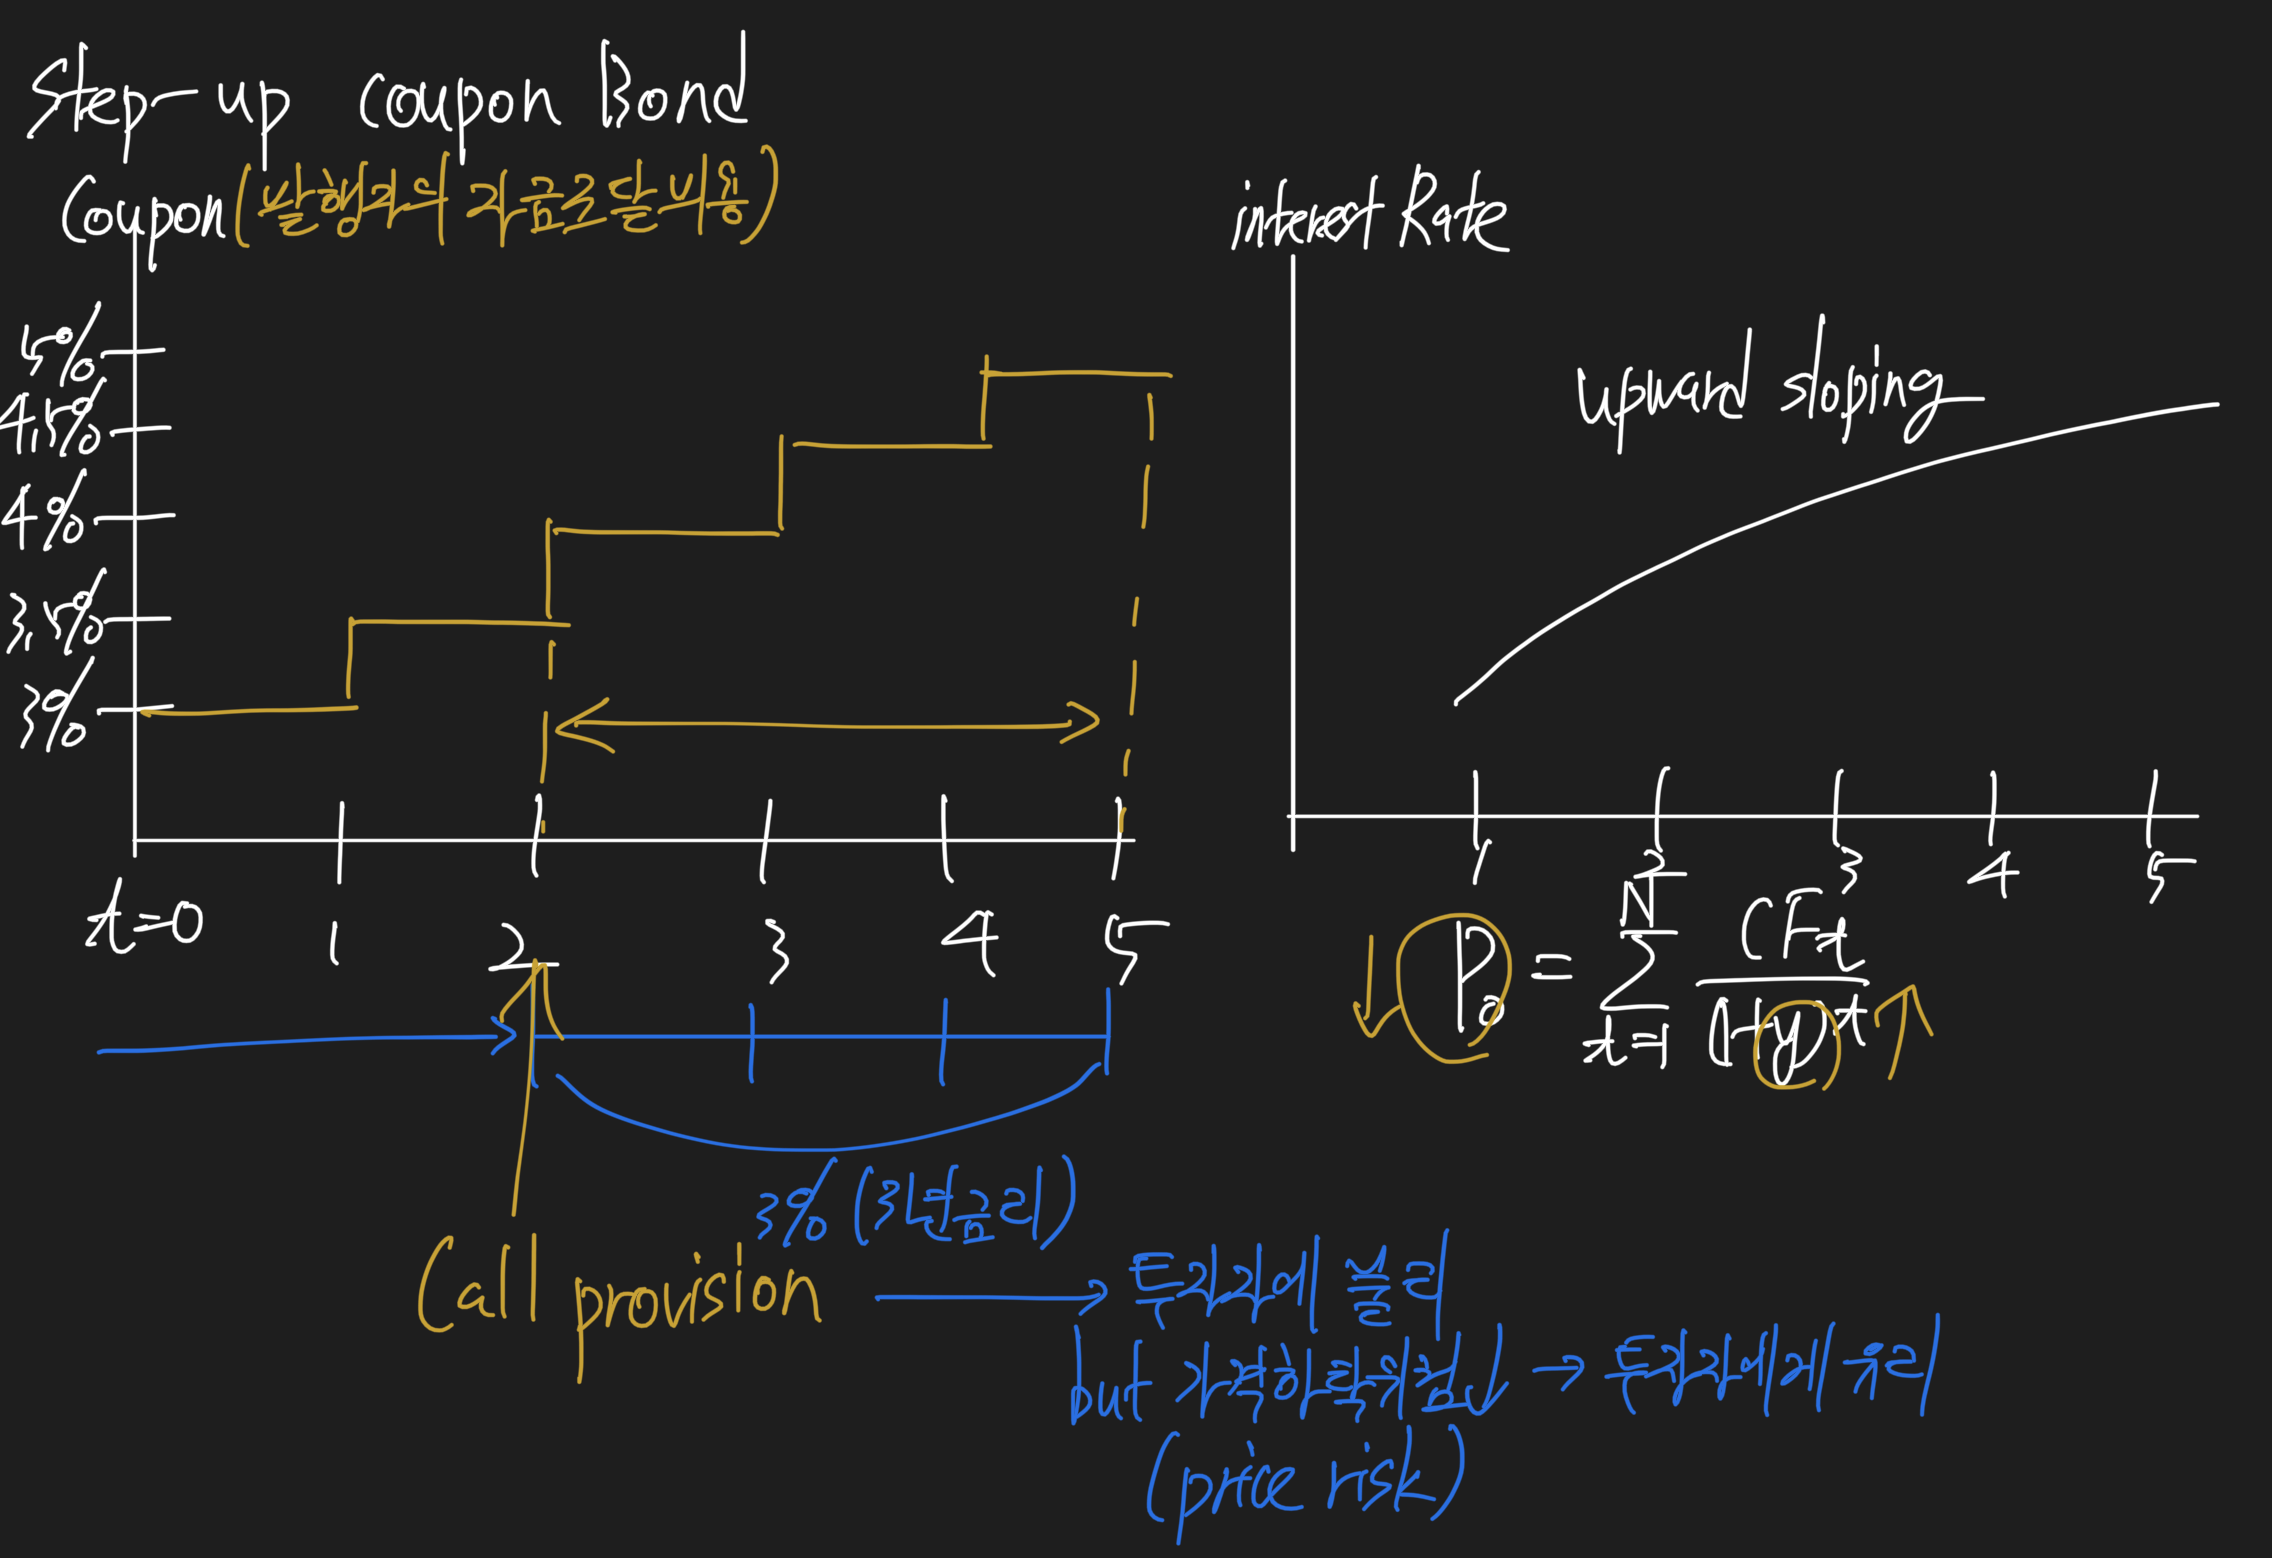 Step-up Coupon Bond
Coupon (발행자의 자금조달비용)
5%
4.5%
4%
3.5%
3%
t=0 1 2 3 4 5
3% (3년금리)
Call provision → 투자자에 불리
but 가격하락위험↓ → 투자자에게 유리
(price risk)
interest Rate
upward sloping
1 2 3 4 5
↓ P₀ = N ∑ t=1 CFt / (1+y)^t ↑